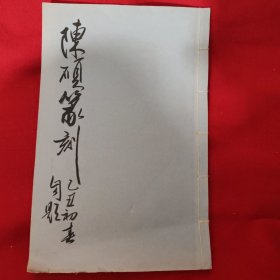 陳碩篆刻
乙丑初春
自題